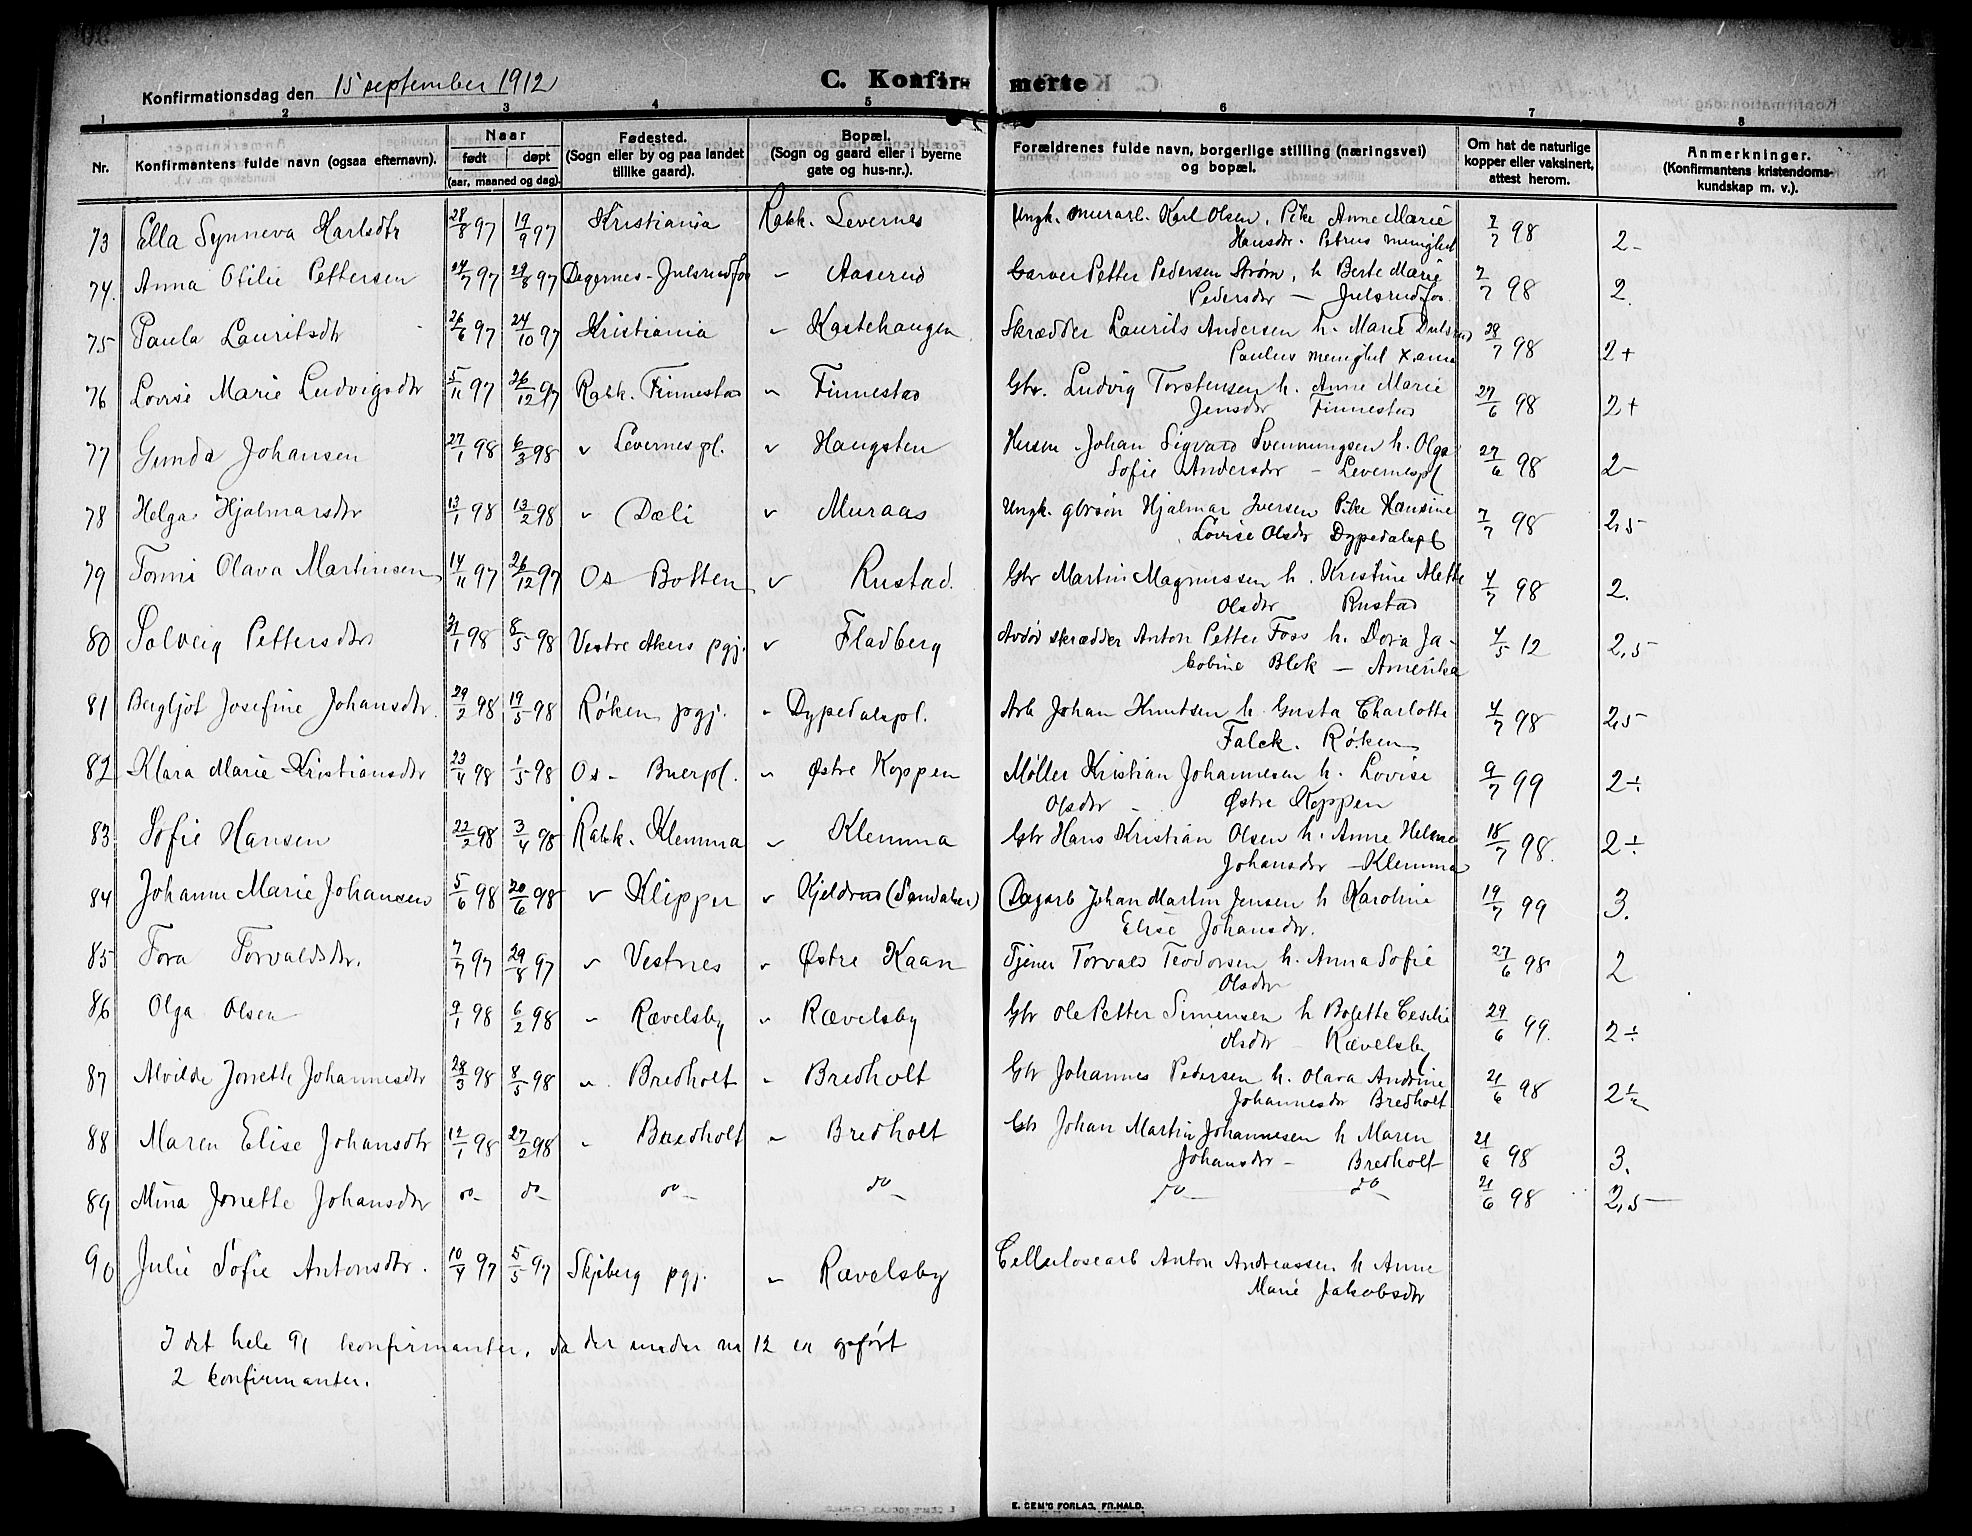 C. Konfirmerte
Konfirmationsdag den 15 september 1912
1 2 3 4 5 6 7 8
Nr. | Konfirmantens fulde navn (ogsaa efternavn). | Naar født døpt (aar, maaned og dag). | Fødested. (Sogn eller by og paa landet tillike gaard). | Bopæl. (Sogn og gaard eller i byerne gate og hus-nr.). | Forældrenes fulde navn, borgerlige stilling (næringsvei) og bopæl. | Om hat de naturlige kopper eller vaksinert, attest herom. | Anmerkninger. (Konfirmantens kristendomskundskap m. v.).
73 Ella Synneva Karlsdtr 28/8 97 19/9 97 Kristiania Rakk. Levernes Ungk. murarb. Karl Olsen, Pike Anne Marie 7/7 98 2-
Hansdtr. Petrus menighet
74. Anna Otilie Pettersen 24/7 97 29/8 97 Degernes-Julsrudfos " Aaserud Garver Petter Pedersen Strøm, h Berte Marie 7/7 98 2.
Pedersdtr — Julsrudfos.
75 Paula Lauritsdtr 26/6 97 24/10 97 Kristiania " Kastehaugen Skrædder Laurits Andersen h. Marie 28/7 98 2+
Paulus menighet X.ania
76 Lovise Marie Ludvigsdtr 5/11 97 26/12 97 Rakk. Finnestad " Finnestad Gbr. Ludvig Torstensen h. Anne Marie 27/6 98 2+
Jensdtr Finnestad
77 Gunda Johansen 27/1 98 6/3 98 " Levernespl. " Haugsten Husm. Johan Sigvard Svenningsen h. Olga 27/6 98 2-
Sofie Andersdtr — Levernespl
78 Helga Hjalmarsdtr 13/1 98 13/2 98 " Dæli " Muraas Ungk. gbrsøn Hjalmar Iversen Pike Hansine 7/7 98 2,5
Lovise Olsdtr Dypedalspl
79 Tonni Olava Martinsen 14/11 97 26/12 97 Os Botten " Rustad. Gbr Martin Magnussen h. Kristine Alette 4/7 98 2.
Olsdtr Rustad
80 Solveig Pettersdtr 31/1 98 8/5 98 Vestre Akers pgj. " Fladberg Avdød skrædder Anton Petter Foss h. Dora Ja- 4/5 12 2,5
kobine Blek — Amerika
81 Bergljot Josefine Johansdtr. 29/2 98 19/5 98 Røken pgj. " Dypedalspl. Arb Johan Knutsen h. Gusta Charlotte 4/7 98 2,5
Falck. Røken
82 Klara Marie Kristiansdtr 23/4 98 1/5 98 Os - Buerpl. " Østre Koppen Møller Kristian Johannesen h. Lovise 9/7 99 2÷
Olsdtr - Østre Koppen
83 Sofie Hansen 22/2 98 3/4 98 Rakk. Klemma " Klemma Gbr Hans Kristian Olsen h. Anne Helene 18/7 98. 2÷
Johansdtr — Klemma
84 Johanne Marie Johansen 5/6 98 20/6 98 " Klipper " Kjeldrud (Sandaker) Dagarb Johan Martin Jensen h Karoline 19/7 99 3.
Elise Johansdtr.
85 Tora Torvaldsdtr. 7/7 97 29/8 97 " Vestnes " Østre Kaan Tjener Torvald Teodorsen h. Anna Sofie 27/6 98 2
Olsdtr
86 Olga Olsen 9/1 98 6/2 98 " Rævelsby " Rævelsby Gbr Ole Petter Simensen h Bolette Cesilie 29/6 99. 2÷
Olsdtr - Rævelsby
87 Alvilde Jonette Johannesdtr 28/3 98 8/5 98 " Bredholt " Bredholt Gbr Johannes Pedersen h. Olava Andrine 21/6 98 2÷
Johannesdtr Bredholt
88 Maren Elise Johansdtr 12/1 98 27/2 98 " Bredholt " Bredholt Gbr Johan Martin Johannesen h Maren 21/6 98 3.
Johansdtr - Bredholt
89 Mina Jonette Johansdtr do- do- do- do- do- do- 21/6 98 2,5
90 Julie Sofie Antonsdtr. 10/4 97 5/5 97 Skjeberg pgj. " Rævelsby Cellulosearb Anton Andreassen h Anne
Marie Jakobsdtr
I det hele 91 konfirmanter, da der under nr 12 er opført
2 konfirmanter.
E. SEM'S FORLAG, FR.HALD.